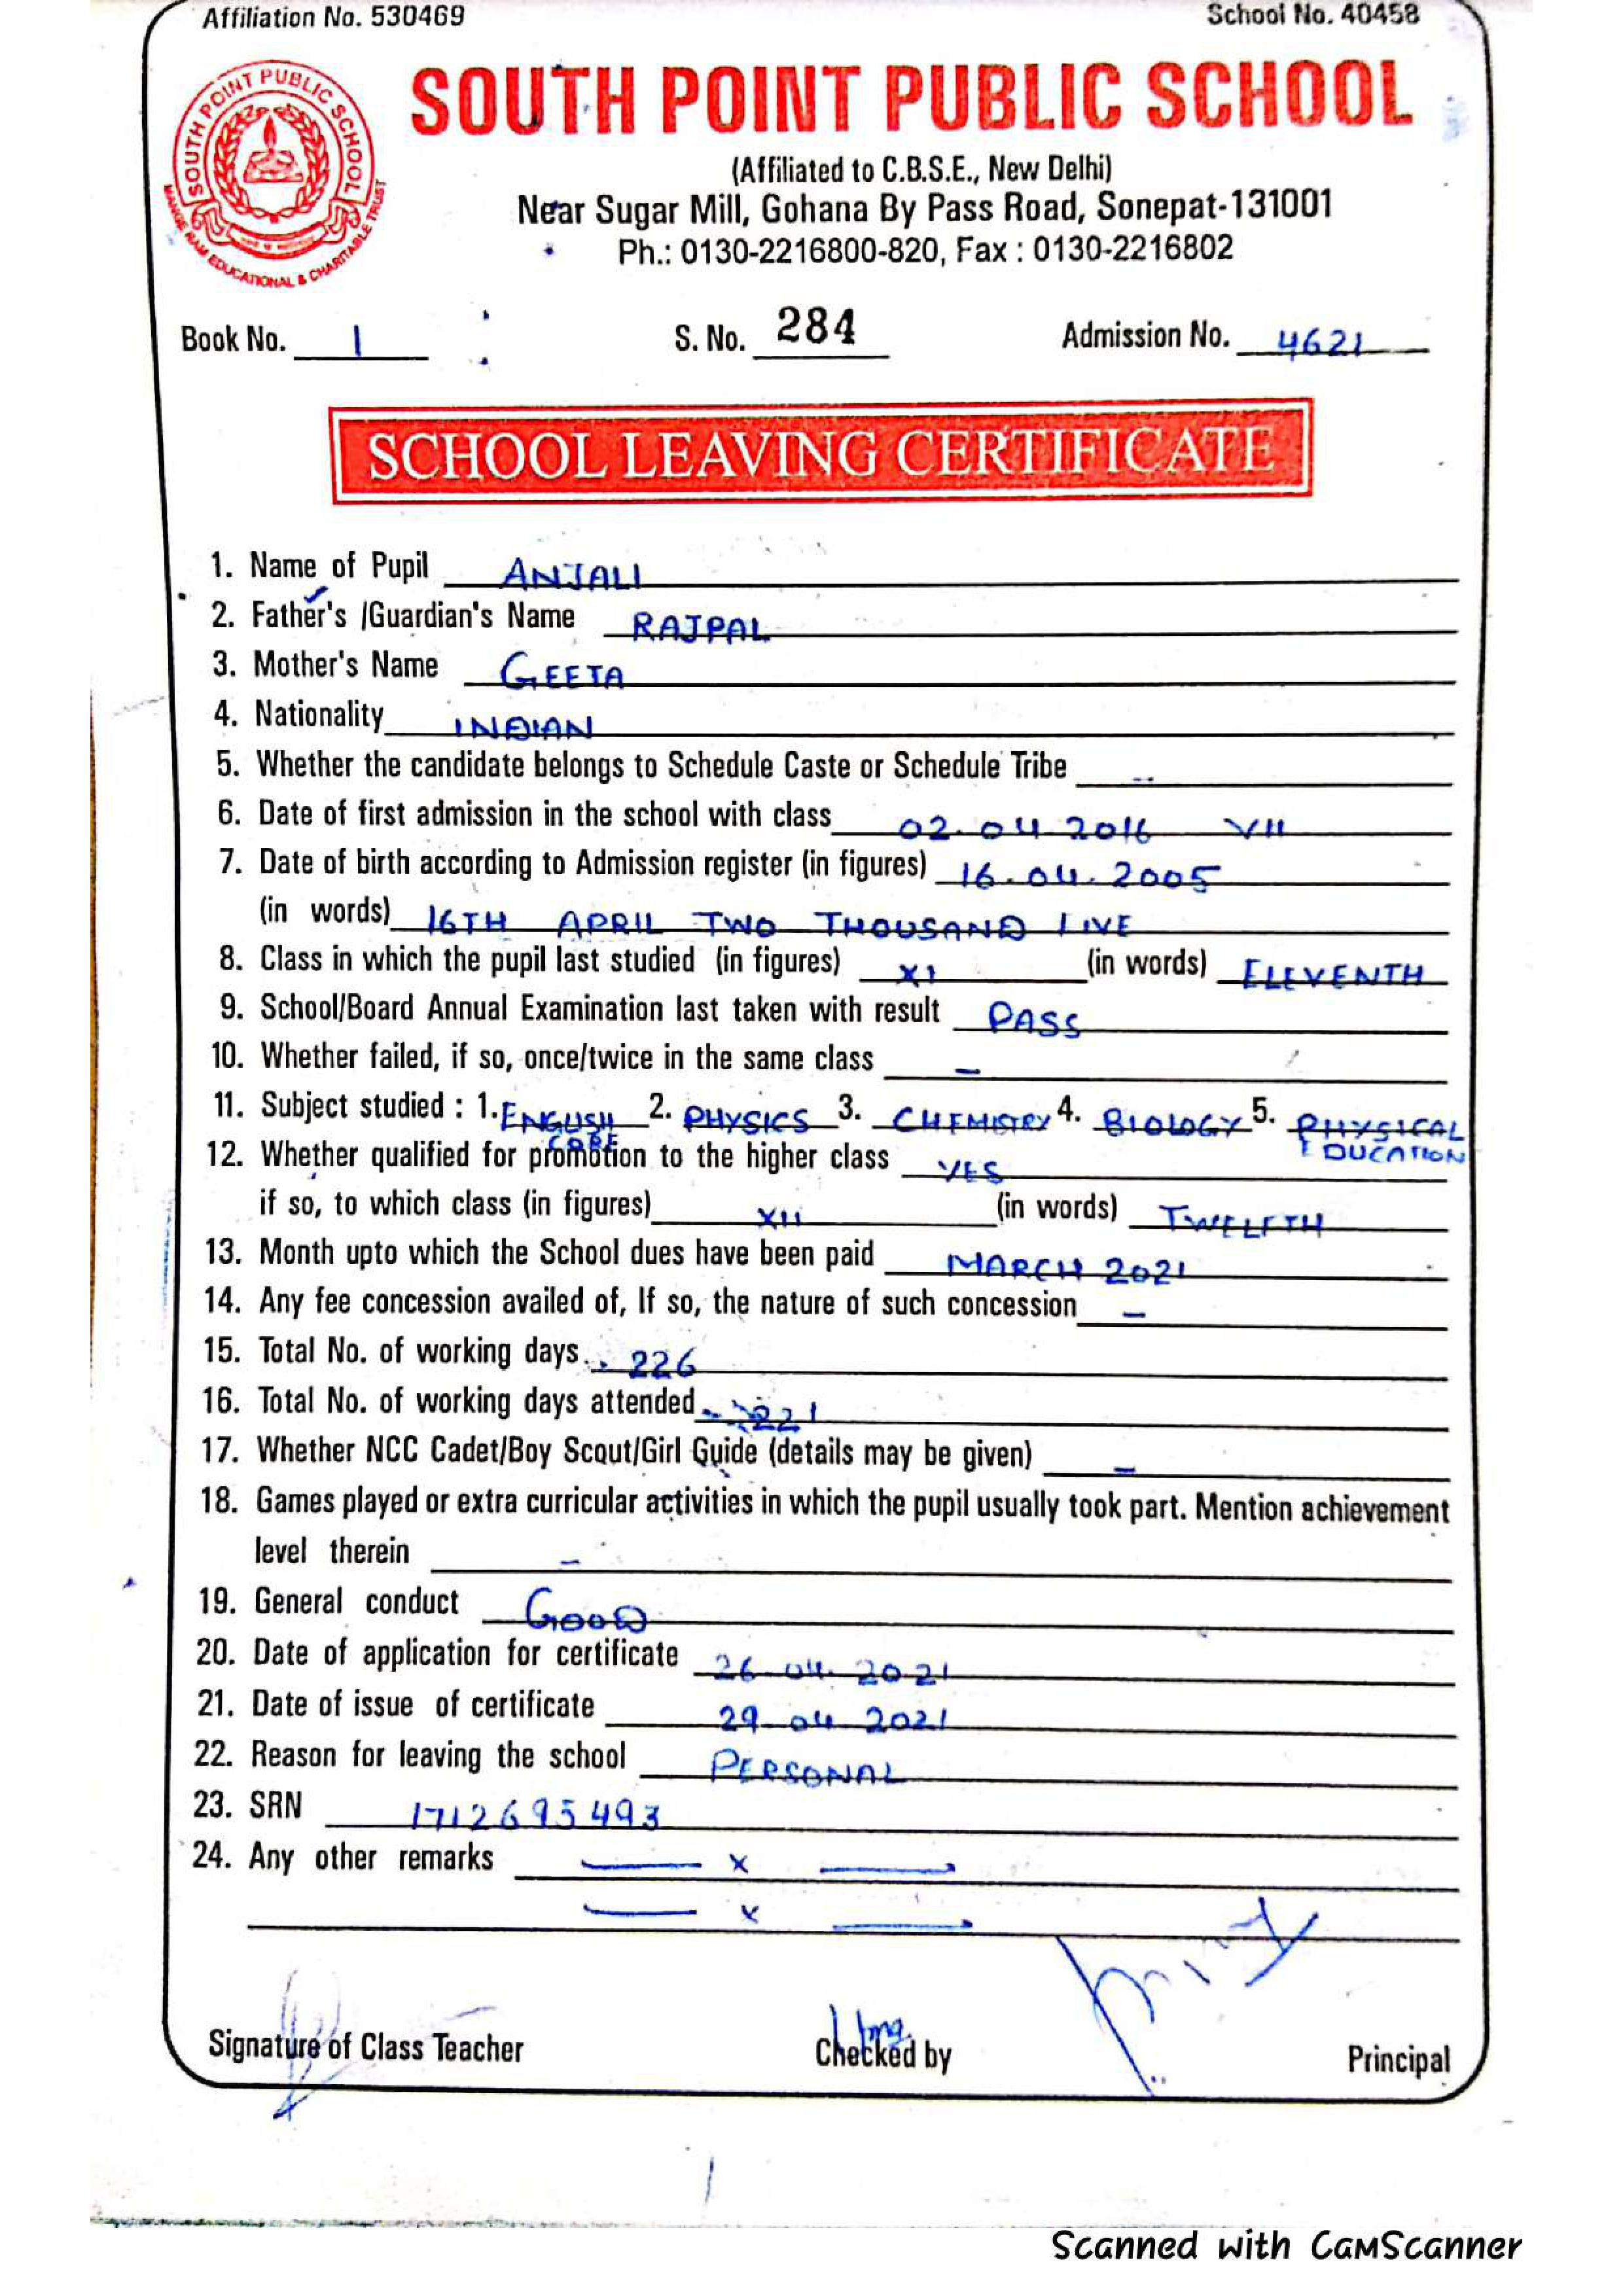 Affiliation No. 530469 School No. 40458
SOUTH POINT PUBLIC SCHOOL
SOUTH POINT PUBLIC SCHOOL
MANGE RAM EDUCATIONAL & CHARITABLE TRUST
(Affiliated to C.B.S.E., New Delhi)
Near Sugar Mill, Gohana By Pass Road, Sonepat-131001
Ph.: 0130-2216800-820, Fax : 0130-2216802
Book No. 1 S. No. 284 Admission No. 4621
SCHOOL LEAVING CERTIFICATE
1. Name of Pupil ANJALI
2. Father's /Guardian's Name RAJPAL
3. Mother's Name GEETA
4. Nationality INDIAN
5. Whether the candidate belongs to Schedule Caste or Schedule Tribe --
6. Date of first admission in the school with class 02.04.2016 VII
7. Date of birth according to Admission register (in figures) 16.04.2005
(in words) 16TH APRIL TWO THOUSAND FIVE
8. Class in which the pupil last studied (in figures) XI (in words) ELEVENTH
9. School/Board Annual Examination last taken with result PASS
10. Whether failed, if so, once/twice in the same class –
11. Subject studied : 1. ENGLISH 2. PHYSICS 3. CHEMISTRY 4. BIOLOGY 5. PHYSICAL
CORE EDUCATION
12. Whether qualified for promotion to the higher class YES
if so, to which class (in figures) XII (in words) TWELFTH
13. Month upto which the School dues have been paid MARCH 2021
14. Any fee concession availed of, If so, the nature of such concession –
15. Total No. of working days 226
16. Total No. of working days attended 221
17. Whether NCC Cadet/Boy Scout/Girl Guide (details may be given) –
18. Games played or extra curricular activities in which the pupil usually took part. Mention achievement
level therein –
19. General conduct GOOD
20. Date of application for certificate 26.04.2021
21. Date of issue of certificate 29.04.2021
22. Reason for leaving the school PERSONAL
23. SRN 1712695493
24. Any other remarks — x —
— x —
Signature of Class Teacher Checked by Principal
Scanned with CamScanner